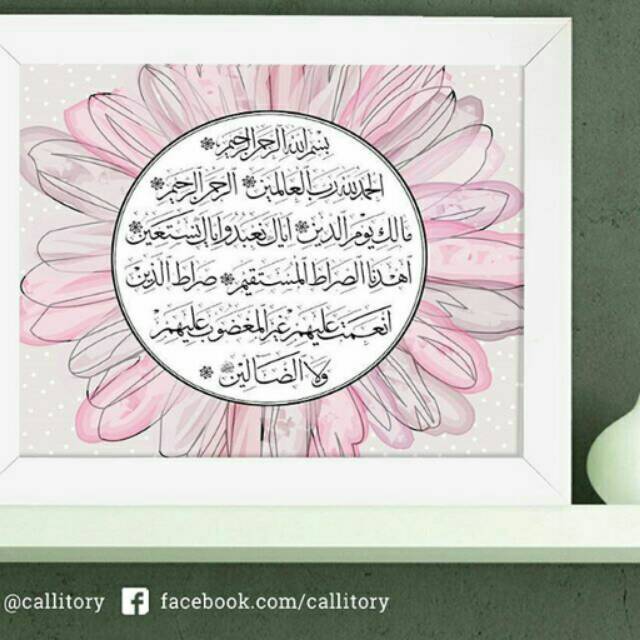 بسم الله الرحمن الرحيم
الحمد لله رب العالمين الرحمن الرحيم
مالك يوم الدين إياك نعبد وإياك نستعين
اهدنا الصراط المستقيم صراط الذين
أنعمت عليهم غير المغضوب عليهم
ولا الضالين
@callitory facebook.com/callitory